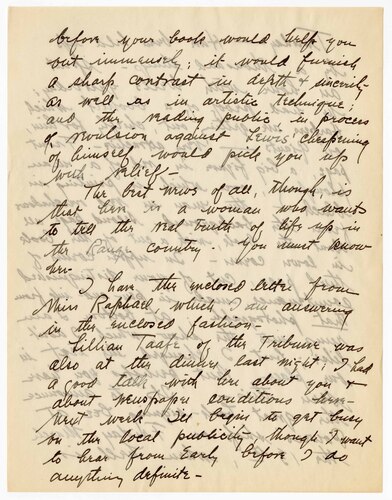 before your book would help you
out immensely; it would furnish
a sharp contrast in depth & sincerity
as well as in artistic technique;
and the reading public in process
of revulsion against Lewis' cheapening
of himself would pick you up
with relief—
The best news of all, though, is
that here is a woman who wants
to tell the real truth of life up in
the Range country. You must know
her—
I have the enclosed letter from
Miss Raphael which I am answering
in the enclosed fashion—
Lillian Taafe of the Tribune was
also at the dinner last night; I had
a good talk with her about you &
about newspaper conditions here—
Next week I'll begin to get busy
on the local publicity, though I want
to hear from Early before I do
anything definite—